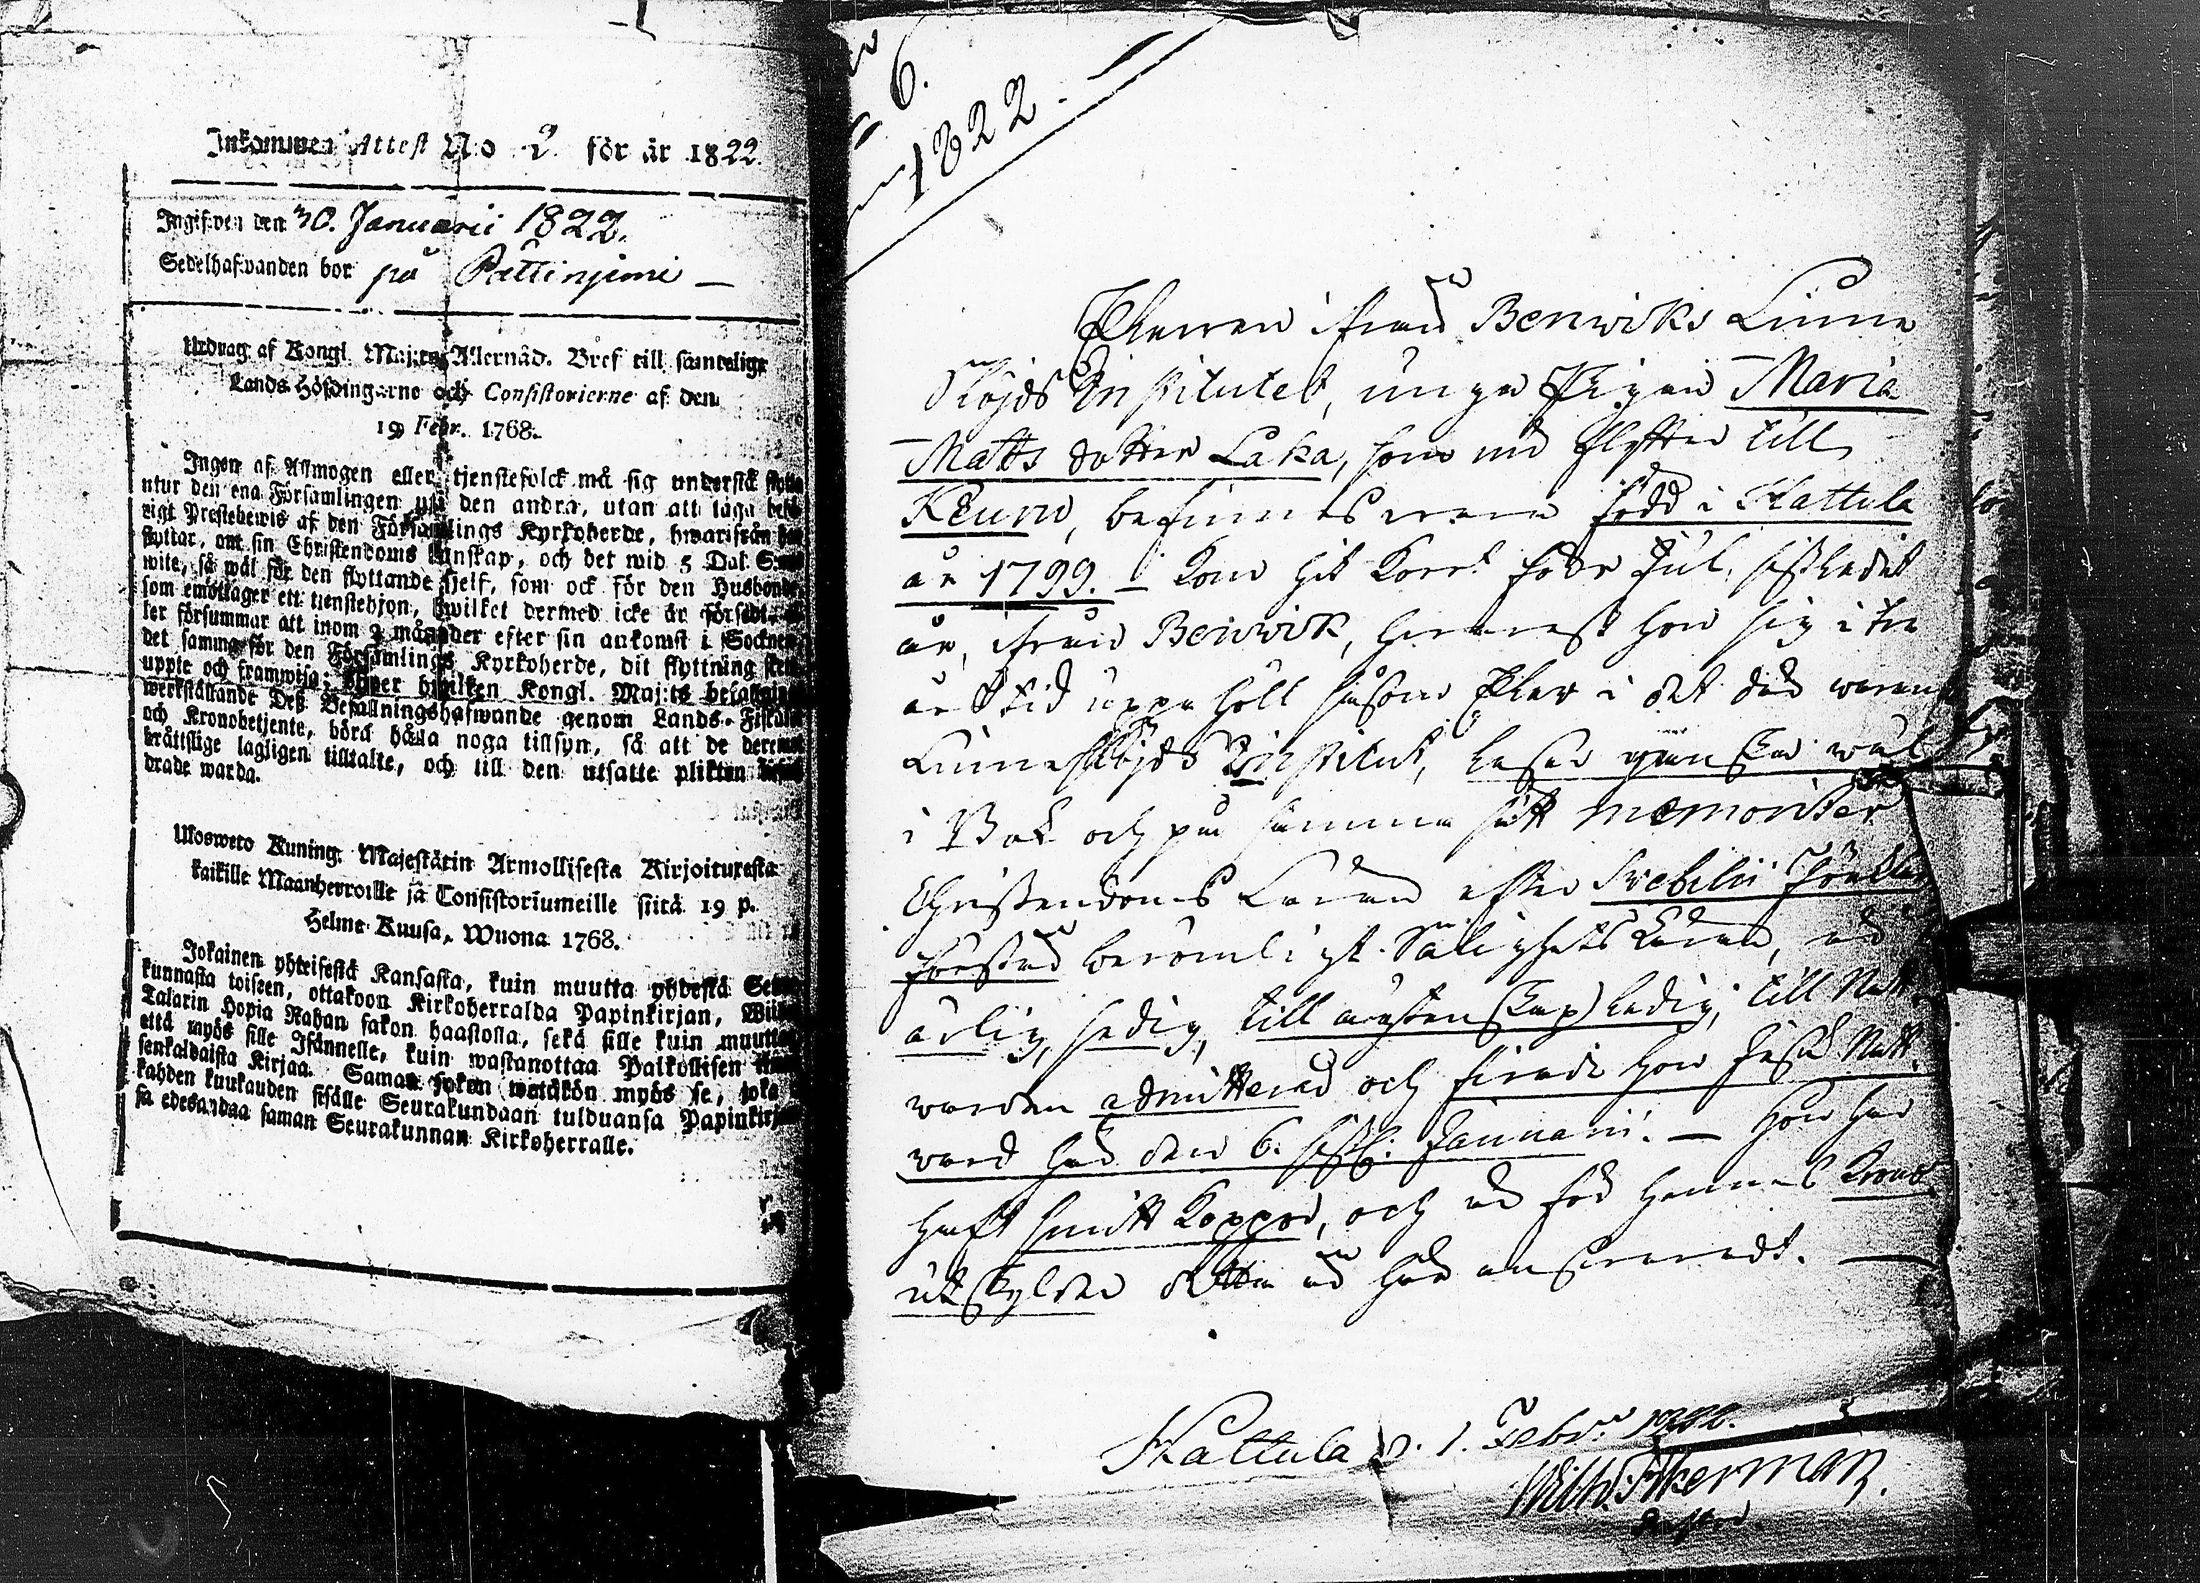 Inkommen Attest No 2. för år 1822.
Ingifven den 30. Januarii 1822.
Sedelhafvanden bor på Pättinjemi
Utdrag af Kongl. Maj:ts Allernåd. Bref till samtelige
Lands-Höfdingarne och Consistorierne af den
19 Febr. 1768.
Ingen af Allmogen eller tjenstefolck må sig understå flytta
utur den ena Församlingen uti den andra, utan att taga behö-
rigt Prestebewis af den Församlings Kyrkoherde, hwarifrån
flyttar, om sin Christendoms kunskap, och det wid 5 Dal. S:mt
wite, så wäl för den flyttande sjelf, som ock för den Husbonde,
som emottager ett tjenstehjon, hwilket dermed icke är försedt,
ler försummar att inom 2 månader efter sin ankomst i Socknen,
det samma för den Församlings Kyrkoherde, dit flyttning
uppte och framwisa; öfwer hwilken Kongl. Maj:ts befallning
werkställande Deß Befallningshafwande genom Lands-Fiskaler
och Kronobetjente, böra hålla noga tillsyn, så att de deremot
brättslige lagligen tilltalte, och till den utsatte plikten
drade warda.
Ulosweto Kuning. Majestätin Armollisesta Kirjoituxesta
kaikille Maanherroille ja Consistoriumeille siitä 19 p.
Helme-Kuusa, Wuona 1768.
Jokainen yhteisestä Kansasta, kuin muutta yhdestä Seura-
kunnasta toiseen, ottakoon Kirkoherralda Papinkirjan, Wiiden
Talarin Hopia Rahan sakon haastolla, sekä sille kuin muutta,
että myös sille Isännelle, kuin wastanottaa Palkollisen
senkaldaista Kirjaa. Saman sakon wetäkön myös se, joka
kahden kuukauden sisälle Seurakundaan tulduansa Papinkirjan
sa edesandaa saman Seurakunnan Kirkoherralle.
6.
1822.
Eleven ifrån Berwiks Linne
Slöjds Institutet, unga Pigan Maria
Matts dotter Laka, som nu flytter till
Keuru, befinnes vara född i Hattula
år 1799. – Kom hit kort före Jul, sistledit
år, ifrån Berwik, hwarest hon sig i tre
års tid uppehöll såsom Elev i det där warande
Linneslöjds Institut, läser ganska wäl
i Bok och på samma sätt memoriter
Christendoms Läran efter Svebilii Förklar.
förstår berömligt Salighets Läran, är
ärlig, sedig, till ägtenskap ledig, till Natt-
warden admitterad och firade hon Jesu Natt-
ward här den 6. sistl. Januarii. – Hon har
haft smitt Koppor, och är för henne Krono
utskylder detta år här ansvaradt. —
Hattula d. 1. Febr. 1822.
Wilh. Åkerman.
Pastor.